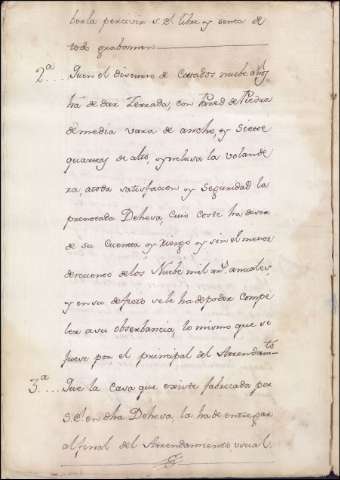 berla percivir v. el. libre, y esenta de
todo grabamen.
2ª... Que en el discurso de los dos nuebe años,
ha de dar Zercada, con Pared de Piedra
de media vara de ancho, y Siete
quartas de alto, y relusa la volande
ra, a toda satisfacion y Seguridad la
prenotada Dehesa, cuio coste ha de ser
de su Cuenta y riesgo y sin el menor
descuento de los Nuebe mil rr.s anuales,
y en su defecto se le ha de poder compe
ler a su observancia, lo mismo que si
fuese por el principal del Arrendam.to
3ª... Que la casa que existe fabricada por
S.E. en dha Dehesa la ha de entregar
al final del Arrendamiento vsual.